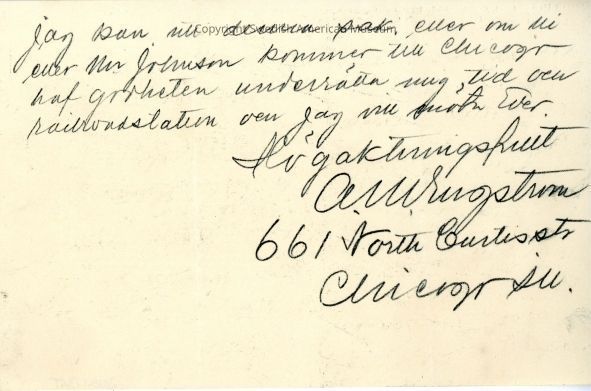 Jag kan nu denna eller om ni
Copyright Swedish American Museum
eller Mr Johnson kommer till Chicago
haf godheten underrätta mig, tid och
railroadstation och jag vill möta Eder.
Högaktningsfullt
A.W. Engstrom
661 North Curtis str
Chicago Ill.